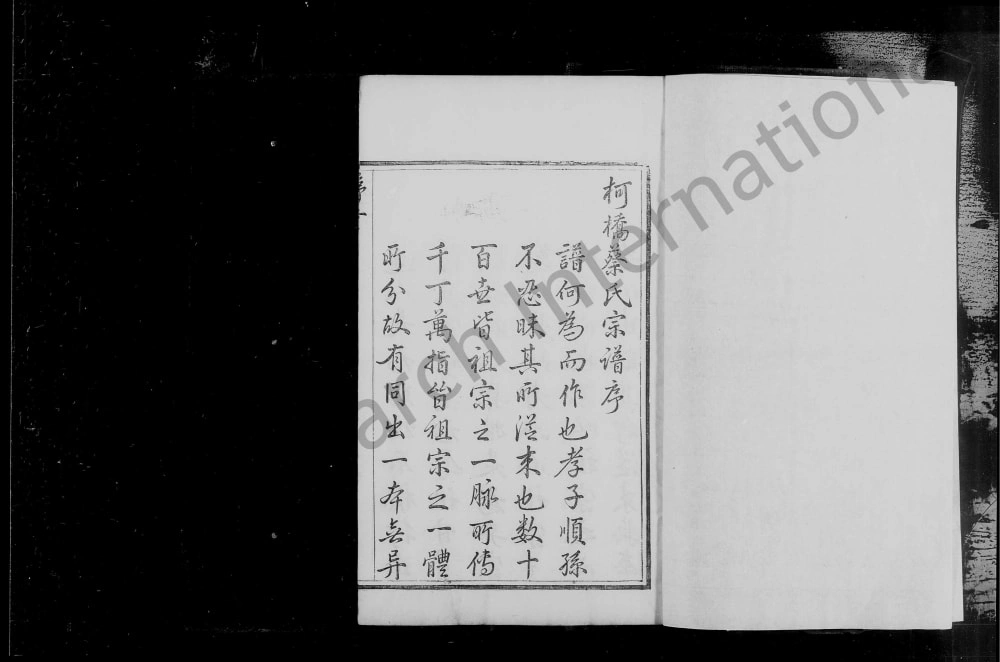 柯橋蔡氏宗譜序
譜何為而作也孝子順孫
不忍昧其所從来也数十
百世皆祖宗之一脉所傳
千丁萬指皆祖宗之一體
所分故有同出一本無异
序一
arch International